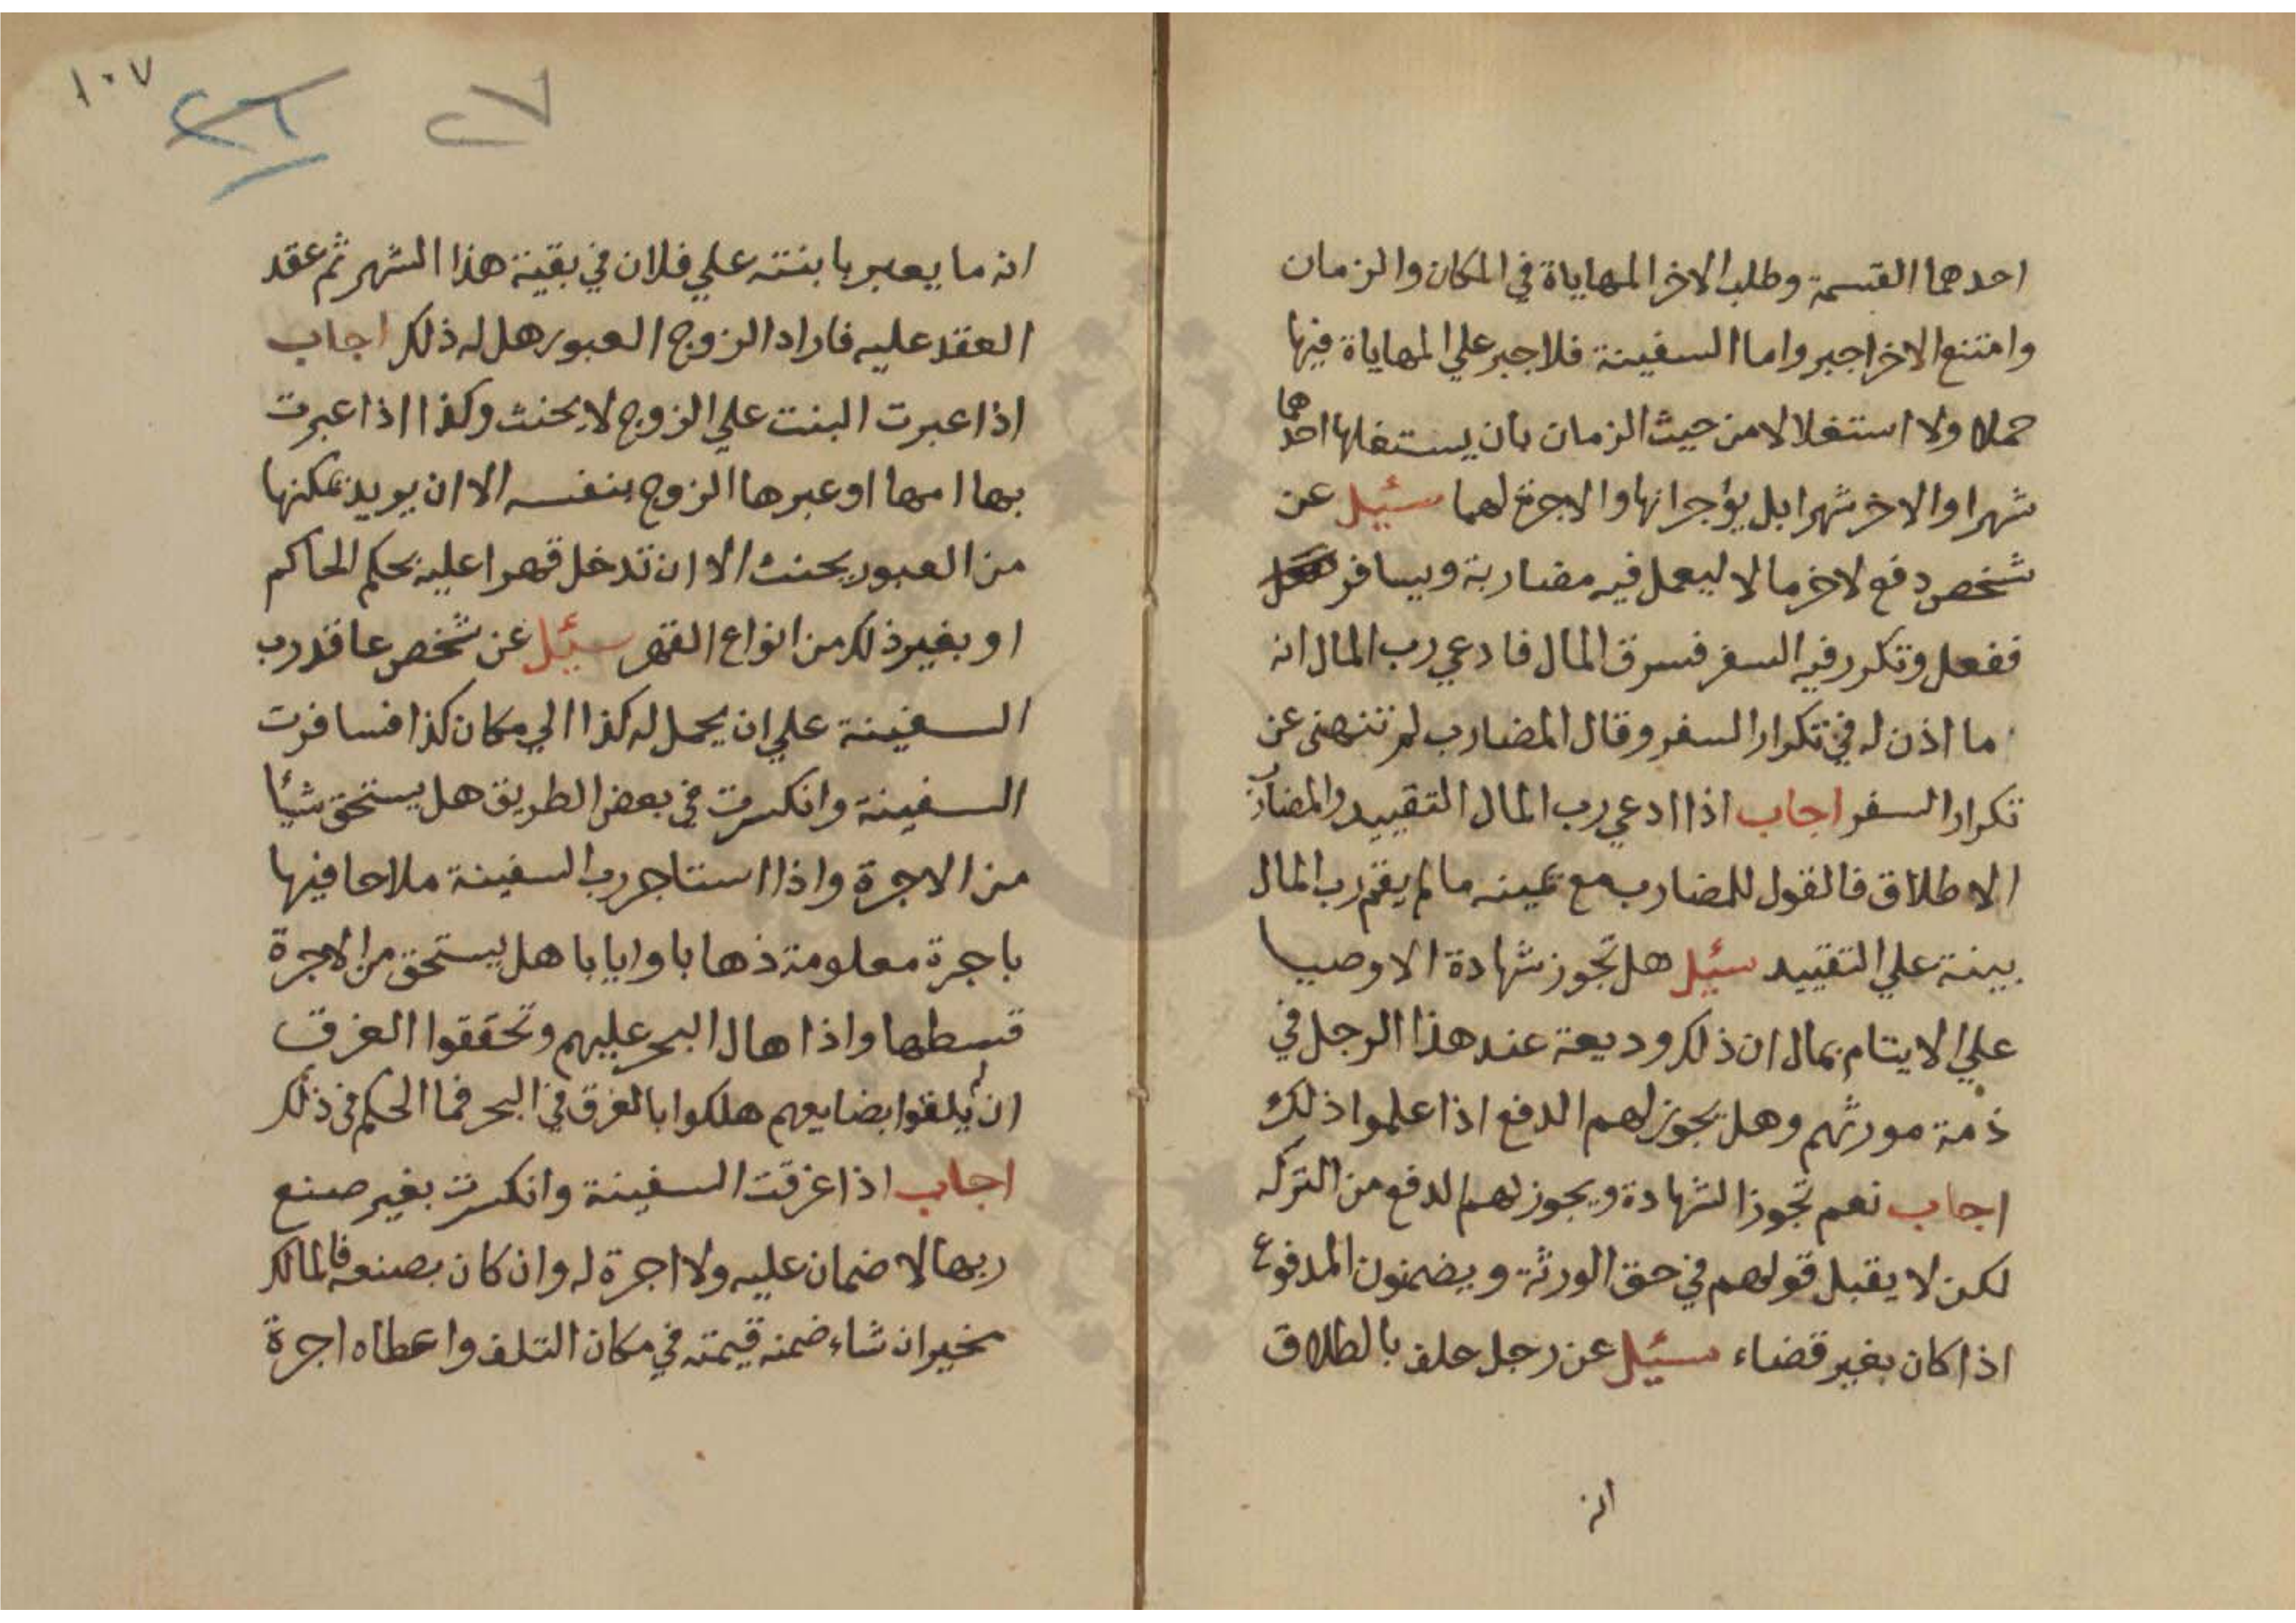 احدهما القسمة وطلب الاخر المهاياة في المكان والزمان
وامتنع الاخر اجبر واما السفينة فلا جبر علي المهاياة فيها
حملا ولا استغلالا من حيث الزمان بان يستغلها احدهما
شهرا والاخر شهرا بل يؤجرانها والاجرة لهما سئيل عن
شخص دفع لاخر مالا ليعمل فيه مضاربة ويسافر
ففعل وتكرر فيه السفر فسرق المال فادعي رب المال انه
ما اذن له في تكرار السفر وقال المضارب لم تنهني عن
تكرار السفر اجاب اذا ادعي رب المال التقييد والمضارب
الاطلاق فالقول للمضارب مع يمينه ما لم يقم رب المال
بينة علي التقييد سئيل هل تجوز شهادة الاوصيا
علي الايتام بمال ان ذلك وديعة عند هذا الرجل في
ذمة مورثهم وهل يجوز لهم الدفع اذا علموا ذلك
اجاب نعم تجوز الشهادة ويجوز لهم الدفع من التركه
لكن لا يقبل قولهم في حق الورثة ويضمنون المدفوع
اذا كان بغير قضاء سئيل عن رجل حلف بالطلاق
انه
١٠٧
٢٦
٢٧
انه ما يعبر بابنته علي فلان في بقية هذا الشهر ثم عقد
العقد عليه فاراد الزوج العبور هل له ذلك اجاب
اذا عبرت البنت علي الزوج لا يحنث وكذا اذا عبرت
بها امها او عبرها الزوج بنفسه الا ان يريد تمكنها
من العبور يحنث الا ان تدخل قهرا عليه بحكم الحاكم
او بغير ذلك من انواع القهر سئيل عن شخص عاقد رب
السفينة علي ان يحمل له كذا الي مكان كذا فسافرت
السفينة وانكسرت في بعض الطريق هل يستحق شيأ
من الاجرة واذا استاجر رب السفينة ملاحا فيها
باجرة معلومة ذهابا وايابا هل يستحق من الاجرة
قسطها واذا هال البحر عليهم وتحققوا الغرق
ان لم يلقوا بضايعهم هلكوا بالغرق في البحر فما الحكم في ذلك
اجاب اذا غرقت السفينة وانكسرت بغير صنع
ربها لا ضمان عليه ولا اجرة له وان كان بصنعه فالمالك
مخير ان شاء ضمنه قيمته في مكان التلف واعطاه اجرة